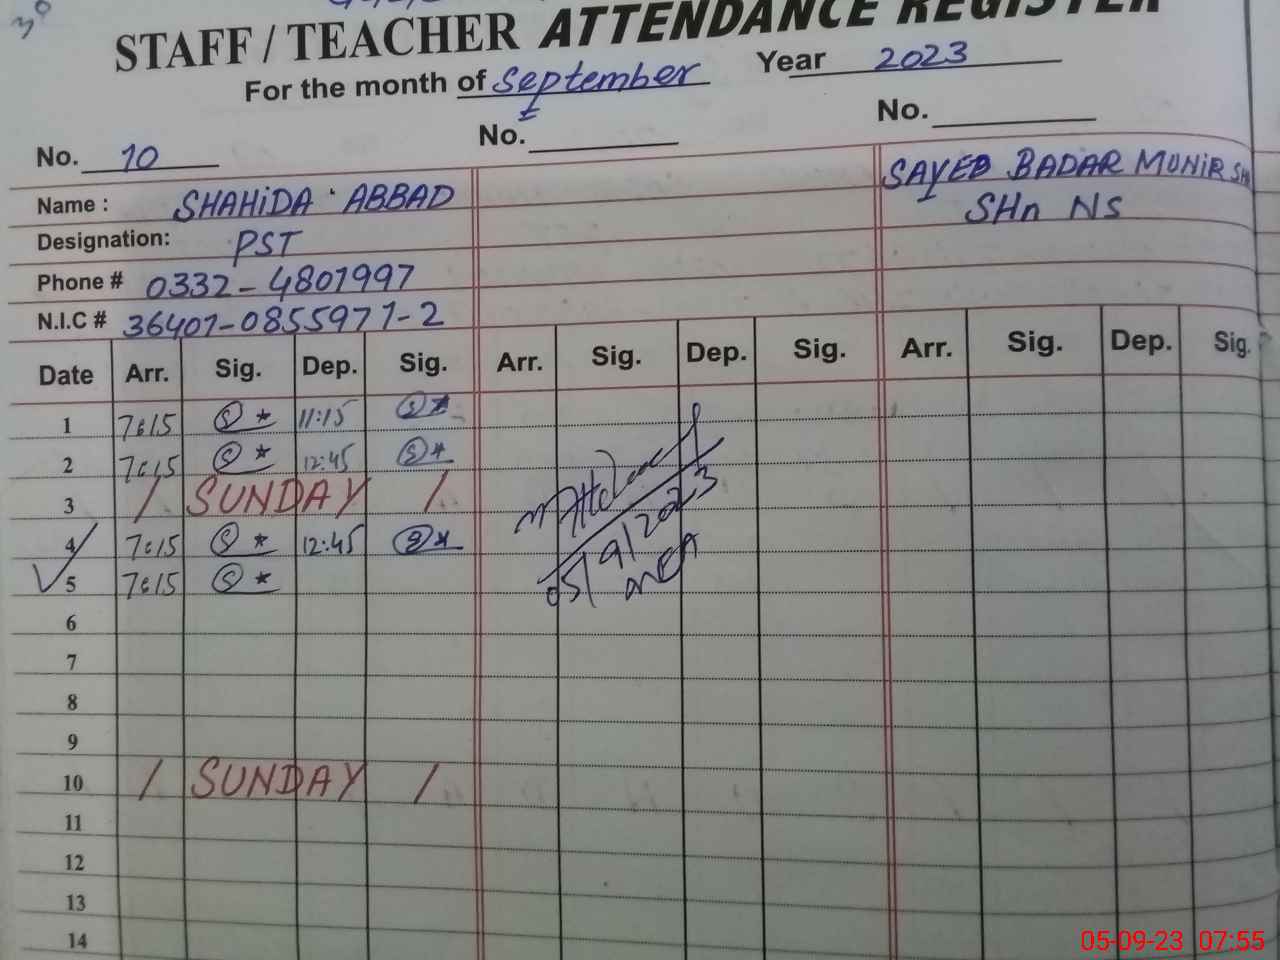 STAFF / TEACHER ATTENDANCE REGISTER
For the month of September Year 2023
No. 10 No. No.
Name : SHAHIDA ABBAD
SAYED BADAR MUNIR
Designation: PST
Phone # 0332-4801997
N.I.C # 36401-0855971-2
Date Arr. Sig. Dep. Sig. Arr. Sig. Dep. Sig. Arr. Sig. Dep. Sig.
1 7:15 11:15
2 7:15 12:45
3 SUNDAY
4 7:15 12:45
5 7:15
05/9/2023
MEA
6
7
8
9
10 SUNDAY
11
12
13
14
05-09-23 07:55